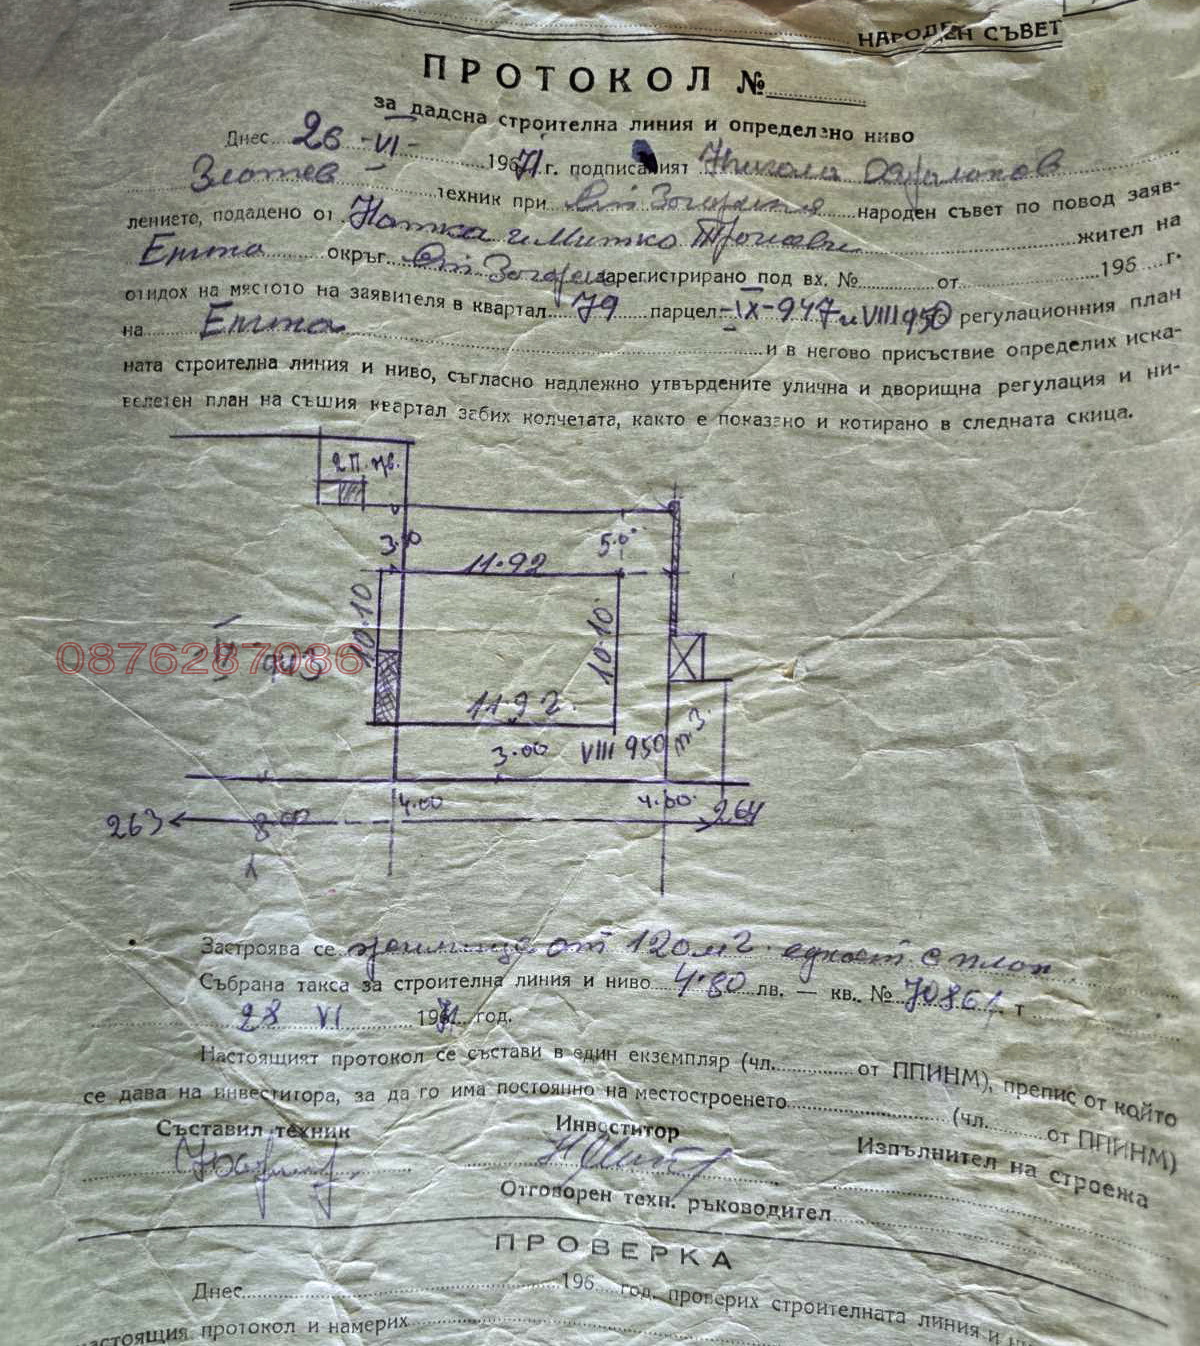 НАРОДЕН СЪВЕТ
ПРОТОКОЛ №
за дадена строителна линия и определено ниво
Днес 26 -VI- 1971 г. подписаният Никола
Златев техник при Ст Загорския народен съвет по повод заяв-
лението, подадено от и Митко жител на
окръг Ст Загора зарегистрирано под вх. № от 196 г.
отидох на мястото на заявителя в квартал 79 парцел -IX-947 и VIII 950 регулационния план
на и в негово присъствие определих иска-
ната строителна линия и ниво, съгласно надлежно утвърдените улична и дворищна регулация и ни-
велетен план на същия квартал забих колчетата, както е показано и котирано в следната скица.
2 П. жв.
3.00 5.0
11.92
10.10 10.10
0876287086
11.92
3.00 VIII 950
4.00 4.00
263 8.00 264
Застроява се жилище от 120 м2 едноет. с плоч
Събрана такса за строителна линия и ниво 4.80 лв. — кв. № 70861 т
28 VI 1971 год.
Настоящият протокол се състави в един екземпляр (чл. от ППИНМ), препис от който
се дава на инвеститора, за да го има постоянно на местостроенето (чл. от ППИНМ)
Съставил техник Инвеститор Изпълнител на строежа
Отговорен техн. ръководител
ПРОВЕРКА
Днес 196 год. проверих строителната линия и
настоящия протокол и намерих